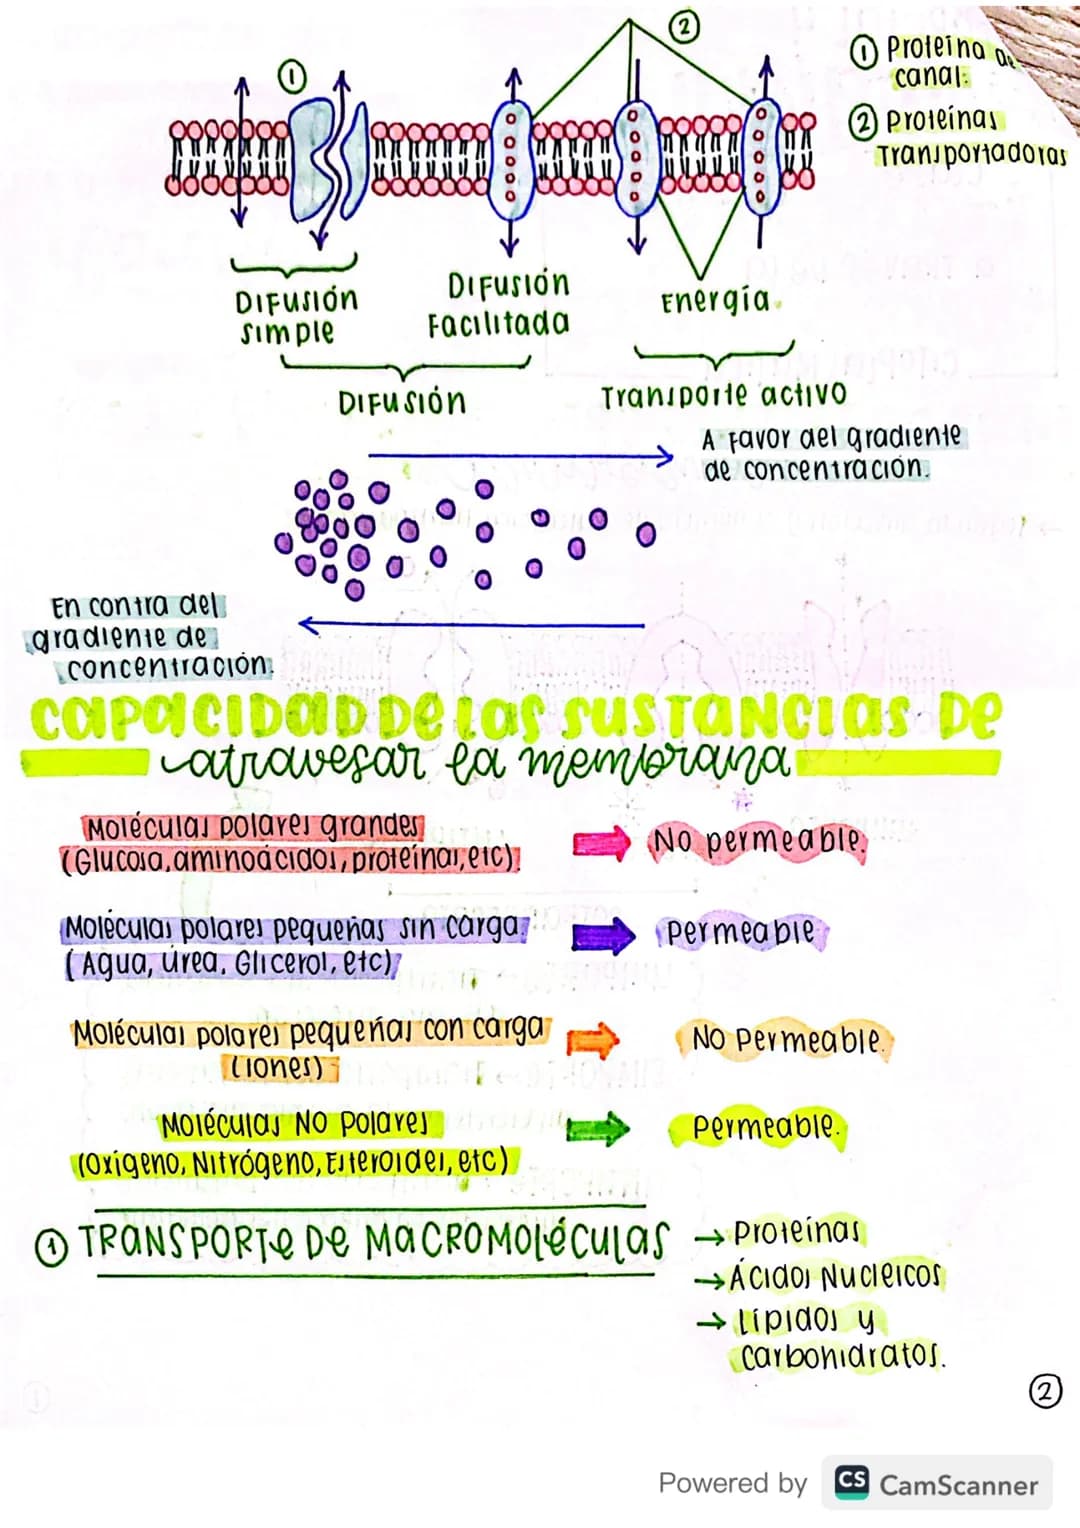 ①
②
① Proteína de
canal:
② Proteínas
Transportadoras
Difusión
simple
Difusión
Facilitada
Energía.
Difusión
Transporte activo
A Favor del gradiente
de concentración.
En contra del
gradiente de
concentración.
CAPACIDAD DE LAS SUSTANCIAS DE
atravesar la membrana
Moléculas polares grandes
(Glucosa, aminoácidos, proteínas, etc)
No permeable.
Moléculas polares pequeñas sin carga.
(Agua, úrea, Glicerol, etc)
Permeable
Moléculas polares pequeñas con carga
(iones)
No Permeable.
Moléculas No Polares
(Oxígeno, Nitrógeno, Esteroides, etc)
Permeable.
① TRANSPORTE DE MACROMOLÉCULAS
→ Proteínas
→ Ácidos Nucleicos
→ Lípidos y
Carbohidratos.
②
Powered by CS CamScanner